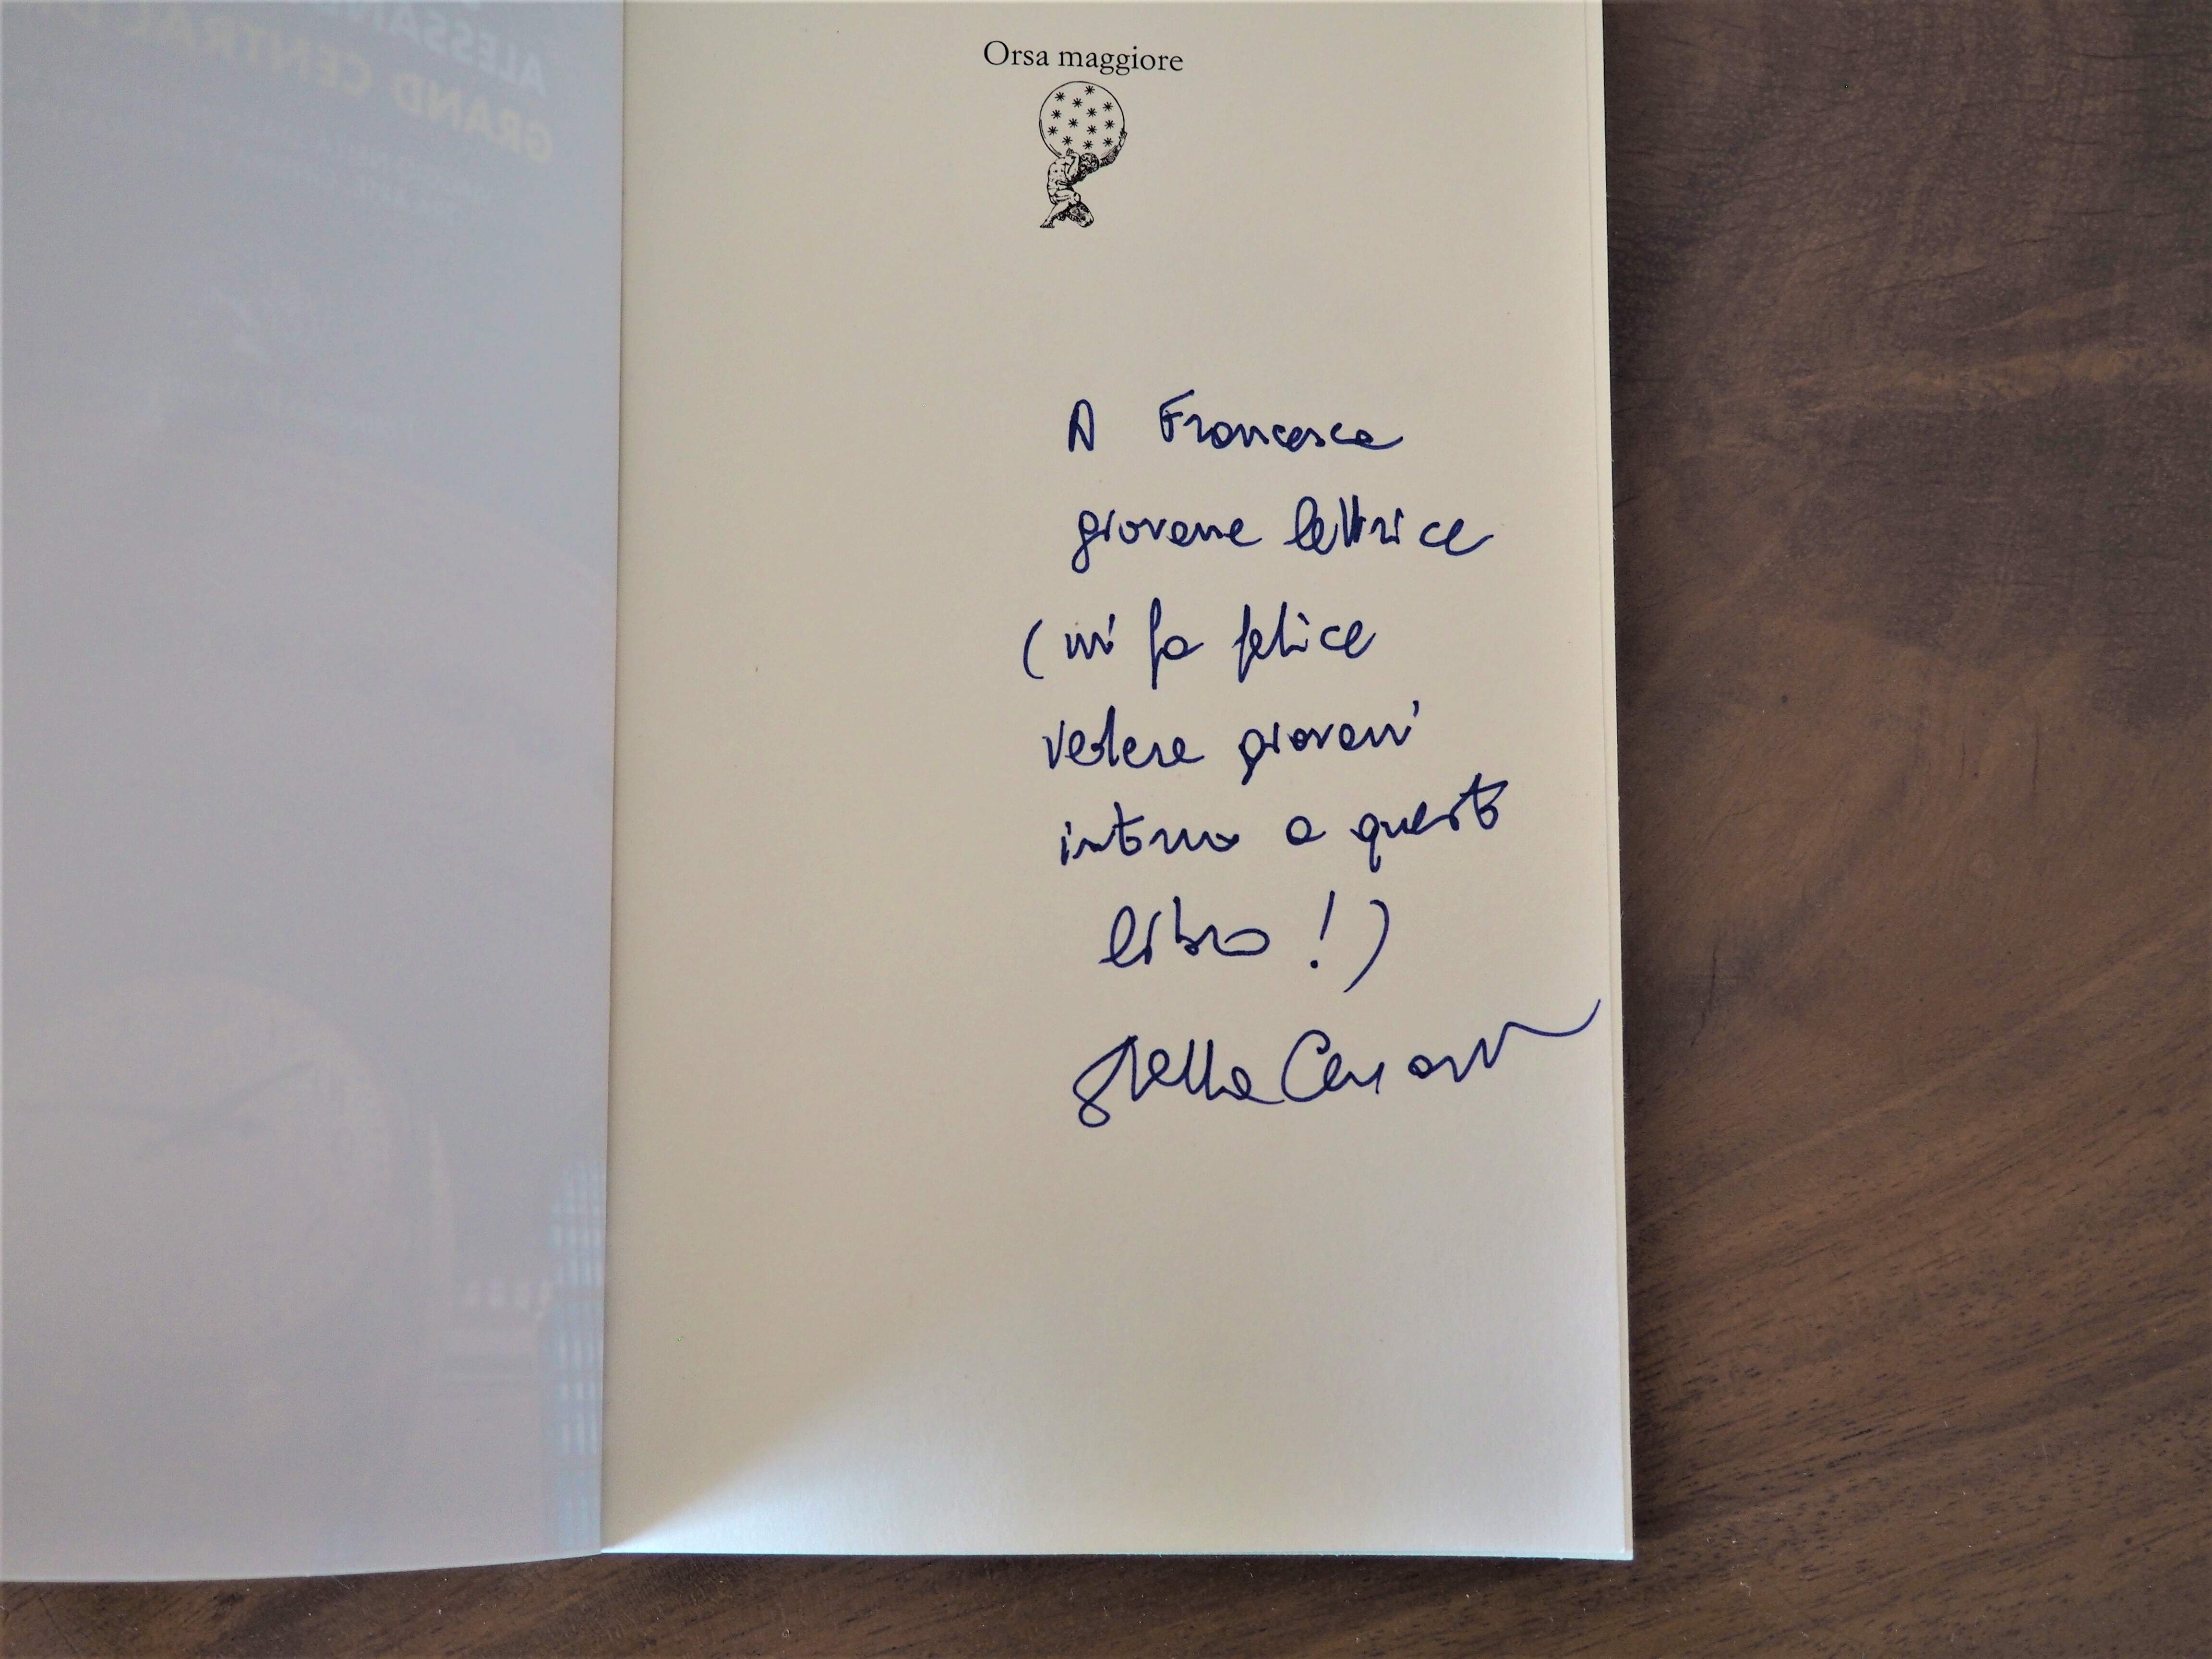 ALESSAN
GRAND CENTRAL
Orsa maggiore
A Francesca
giovane lettrice
(mi fa felice
vedere giovani
intorno a questo
libro!)
Stella